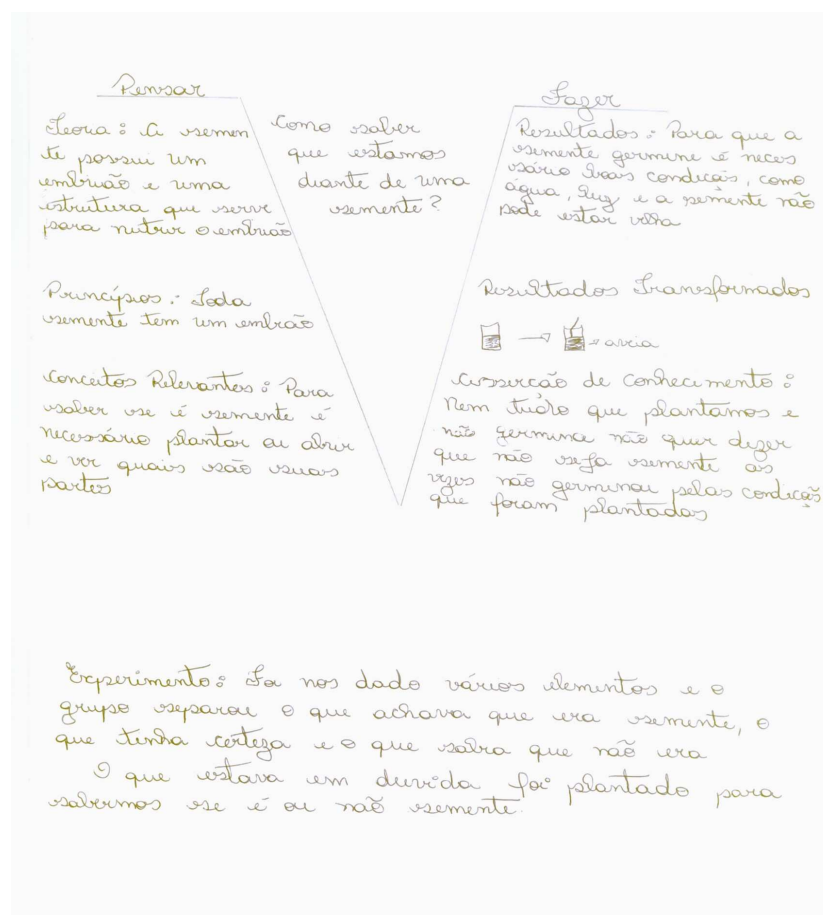 Pensar
Teoria: A semen
te possui um
embrião e uma
estrutura que serve
para nutrir o embrião
Princípios: Toda
semente tem um embrião
Conceitos Relevantes: Para
saber se é semente é
necessário plantar ou abrir
e ver quais são suas
partes
Como saber
que estamos
diante de uma
semente?
Fazer
Resultados: Para que a
semente germine é neces
sário boas condições, como
água, luz e a semente não
pode estar velha
Resultados Transformados
areia
Asserção de conhecimento:
Nem tudo que plantamos e
não germina não quer dizer
que não seja semente as
vezes não germinou pelas condições
que foram plantadas
Experimento: Foi nos dado vários elementos e o
grupo separou o que achava que era semente, o
que tinha certeza e o que sabia que não era
O que estava em duvida foi plantado para
sabermos se é ou não semente.